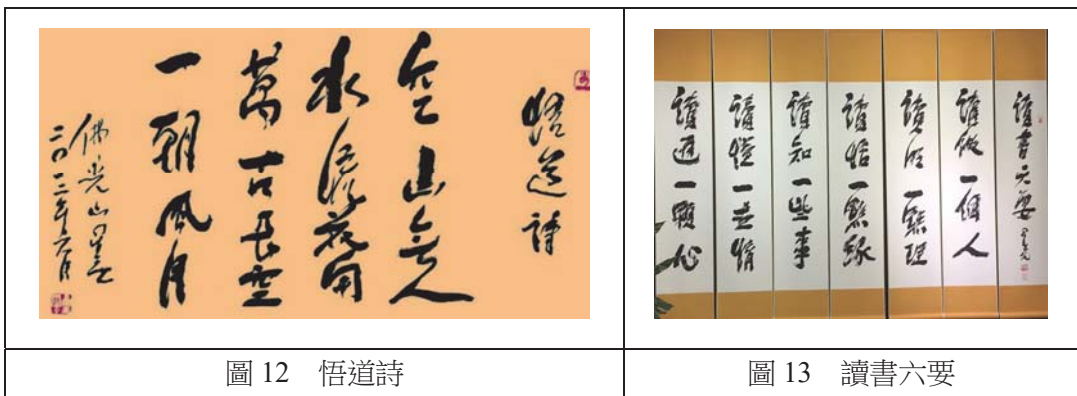 悟道詩
空山無人
水流花開
萬古長空
一朝風月
佛光山星雲
讀書六要 星雲
讀做一個人
讀明一點理
讀悟一點緣
讀知一些事
讀懂一情
讀通一顆心
圖 12 悟道詩
圖 13 讀書六要